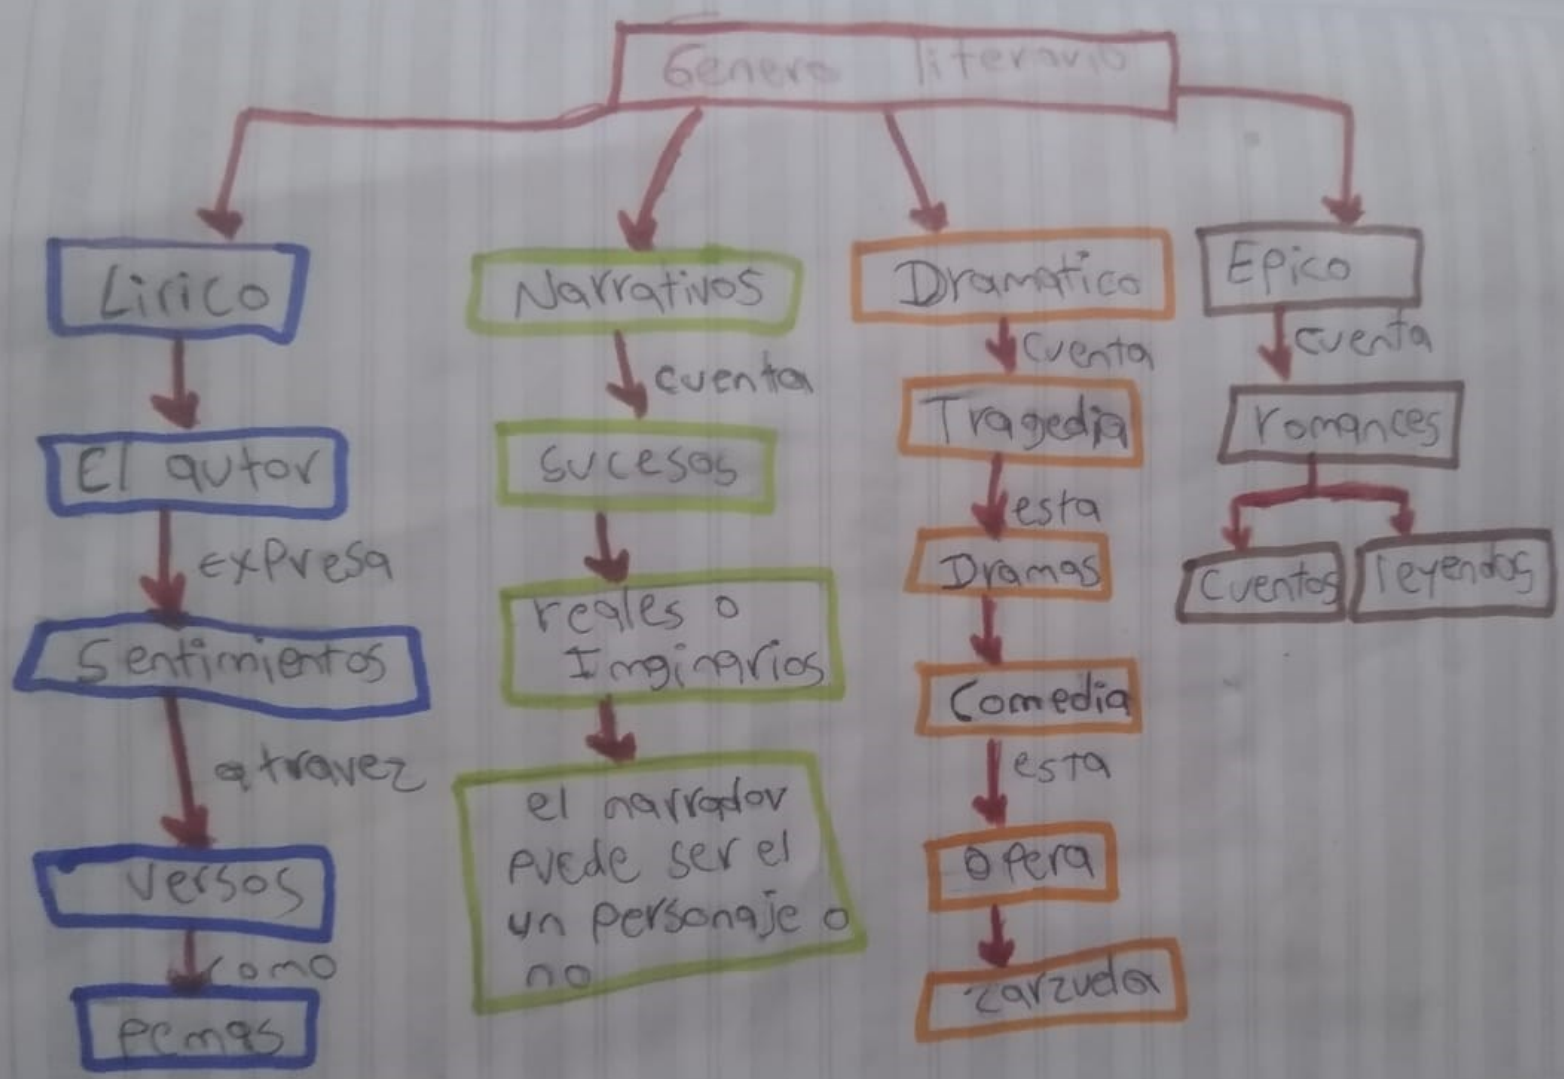 Genero literario
Lirico
El autor
expresa
Sentimientos
atravez
versos
como
pemas
Narrativos
cuenta
sucesos
reales o
Imginarios
el narrador
puede ser el
un personaje o
no
Dramatico
cuenta
Tragedia
esta
Dramas
Comedia
esta
opera
zarzuela
Epico
cuenta
romances
Cuentos
leyendas